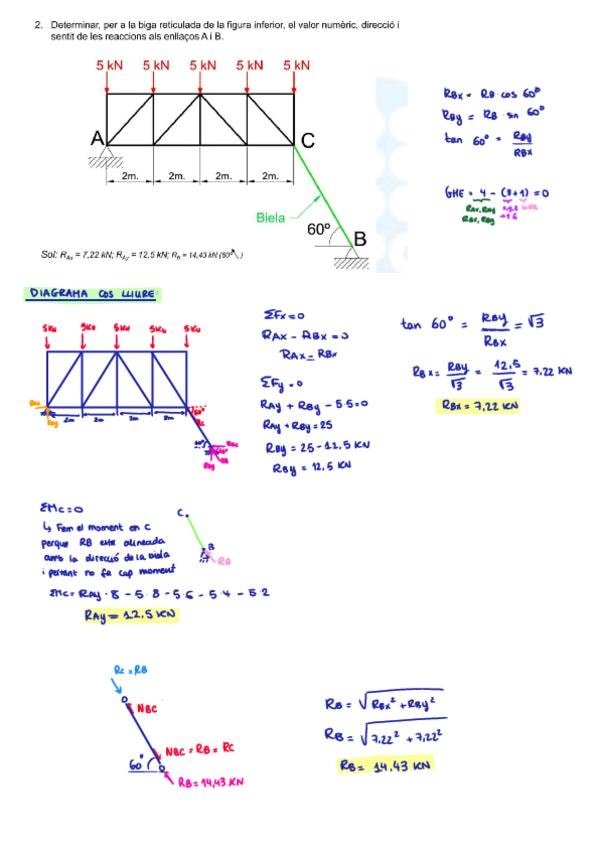 2. Determinar, per a la biga reticulada de la figura inferior, el valor numèric, direcció i
sentit de les reaccions als enllaços A i B.
5 kN 5 kN 5 kN 5 kN 5 kN
A
C
2m. 2m. 2m. 2m.
Biela
60º
B
Sol: RAx = 7,22 kN; RAy = 12,5 kN; RB = 14,43 kN
RBx = RB · cos 60º
RBy = RB · sin 60º
tan 60º = RBy / RBx
GHE = 4 - (3+1) = 0
DIAGRAMA COS LLIURE:
5KN 5KN 5KN 5KN 5KN
2m 2m 2m 2m
ΣFx = 0
RAx - RBx = 0
RAx = RBx
ΣFy = 0
RAy + RBy - 5·5 = 0
RAy + RBy = 25
RBy = 25 - 12,5 KN
RBy = 12,5 KN
tan 60º = RBy / RBx = √3
RBx = RBy / √3 = 12,5 / √3 = 7,22 KN
RBx = 7,22 KN
ΣMc = 0
↳ Fem el moment en C
perque RB està alineada
amb la direcció de la biela
i pertant no fa cap moment
C.
B
RB
ΣMc = RAy · 8 - 5·8 - 5·6 - 5·4 - 5·2
RAy = 12,5 KN
Rc = RB
NBC
NBC = RB = RC
60º
RB = 14,43 KN
RB = √RBx² + RBy²
RB = √7,22² + 7,22²
RB = 14,43 KN